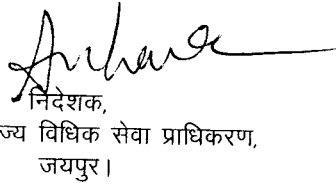 निदेशक,
ज्य विधिक सेवा प्राधिकरण,
जयपुर।